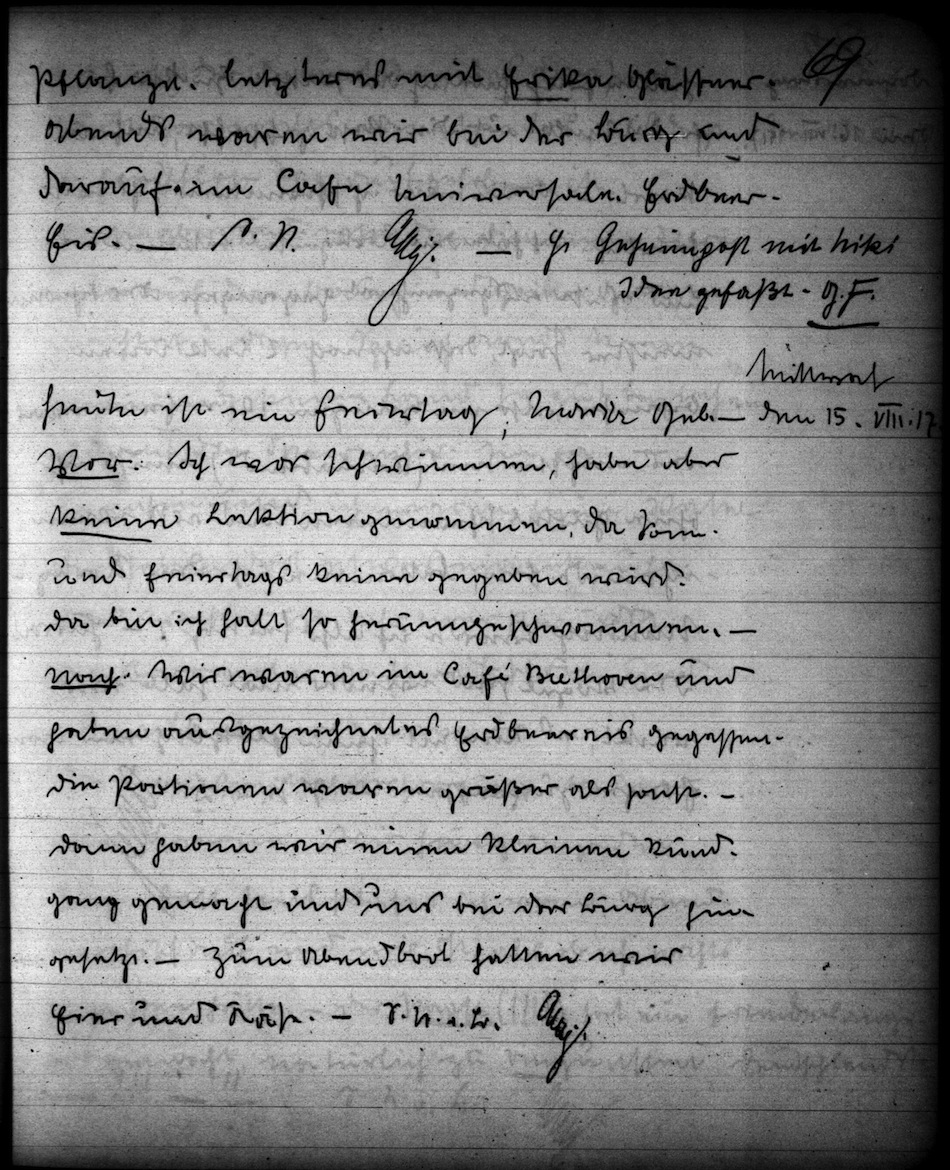 69
Pflanze. Letzteres mit Erika Glässner.
Abends waren wir bei der Burg und
darauf im Cafe Universale. Erdbeer-
Eis. — S. N. — Geheimpost mit Niki
Idee gefaßt - G.F.
Mittwoch
Heute ist ein Feiertag, Mariä Geb. — den 15. VIII. 17.
Vor. Ich war schwimmen, habe aber
keine Lektion genommen, da Sonn-
und Feiertags keine gegeben wird.
da bin ich halt so herumgeschwommen. —
Nach. Wir waren im Café Beethoven und
haben ausgezeichnetes Erdbeereis gegessen.
die Portionen waren größer als sonst. —
dann haben wir einen kleinen Rund-
gang gemacht und uns bei der Burg hin-
gesetzt. — Zum Abendbrot hatten wir
Eier und Käse. —